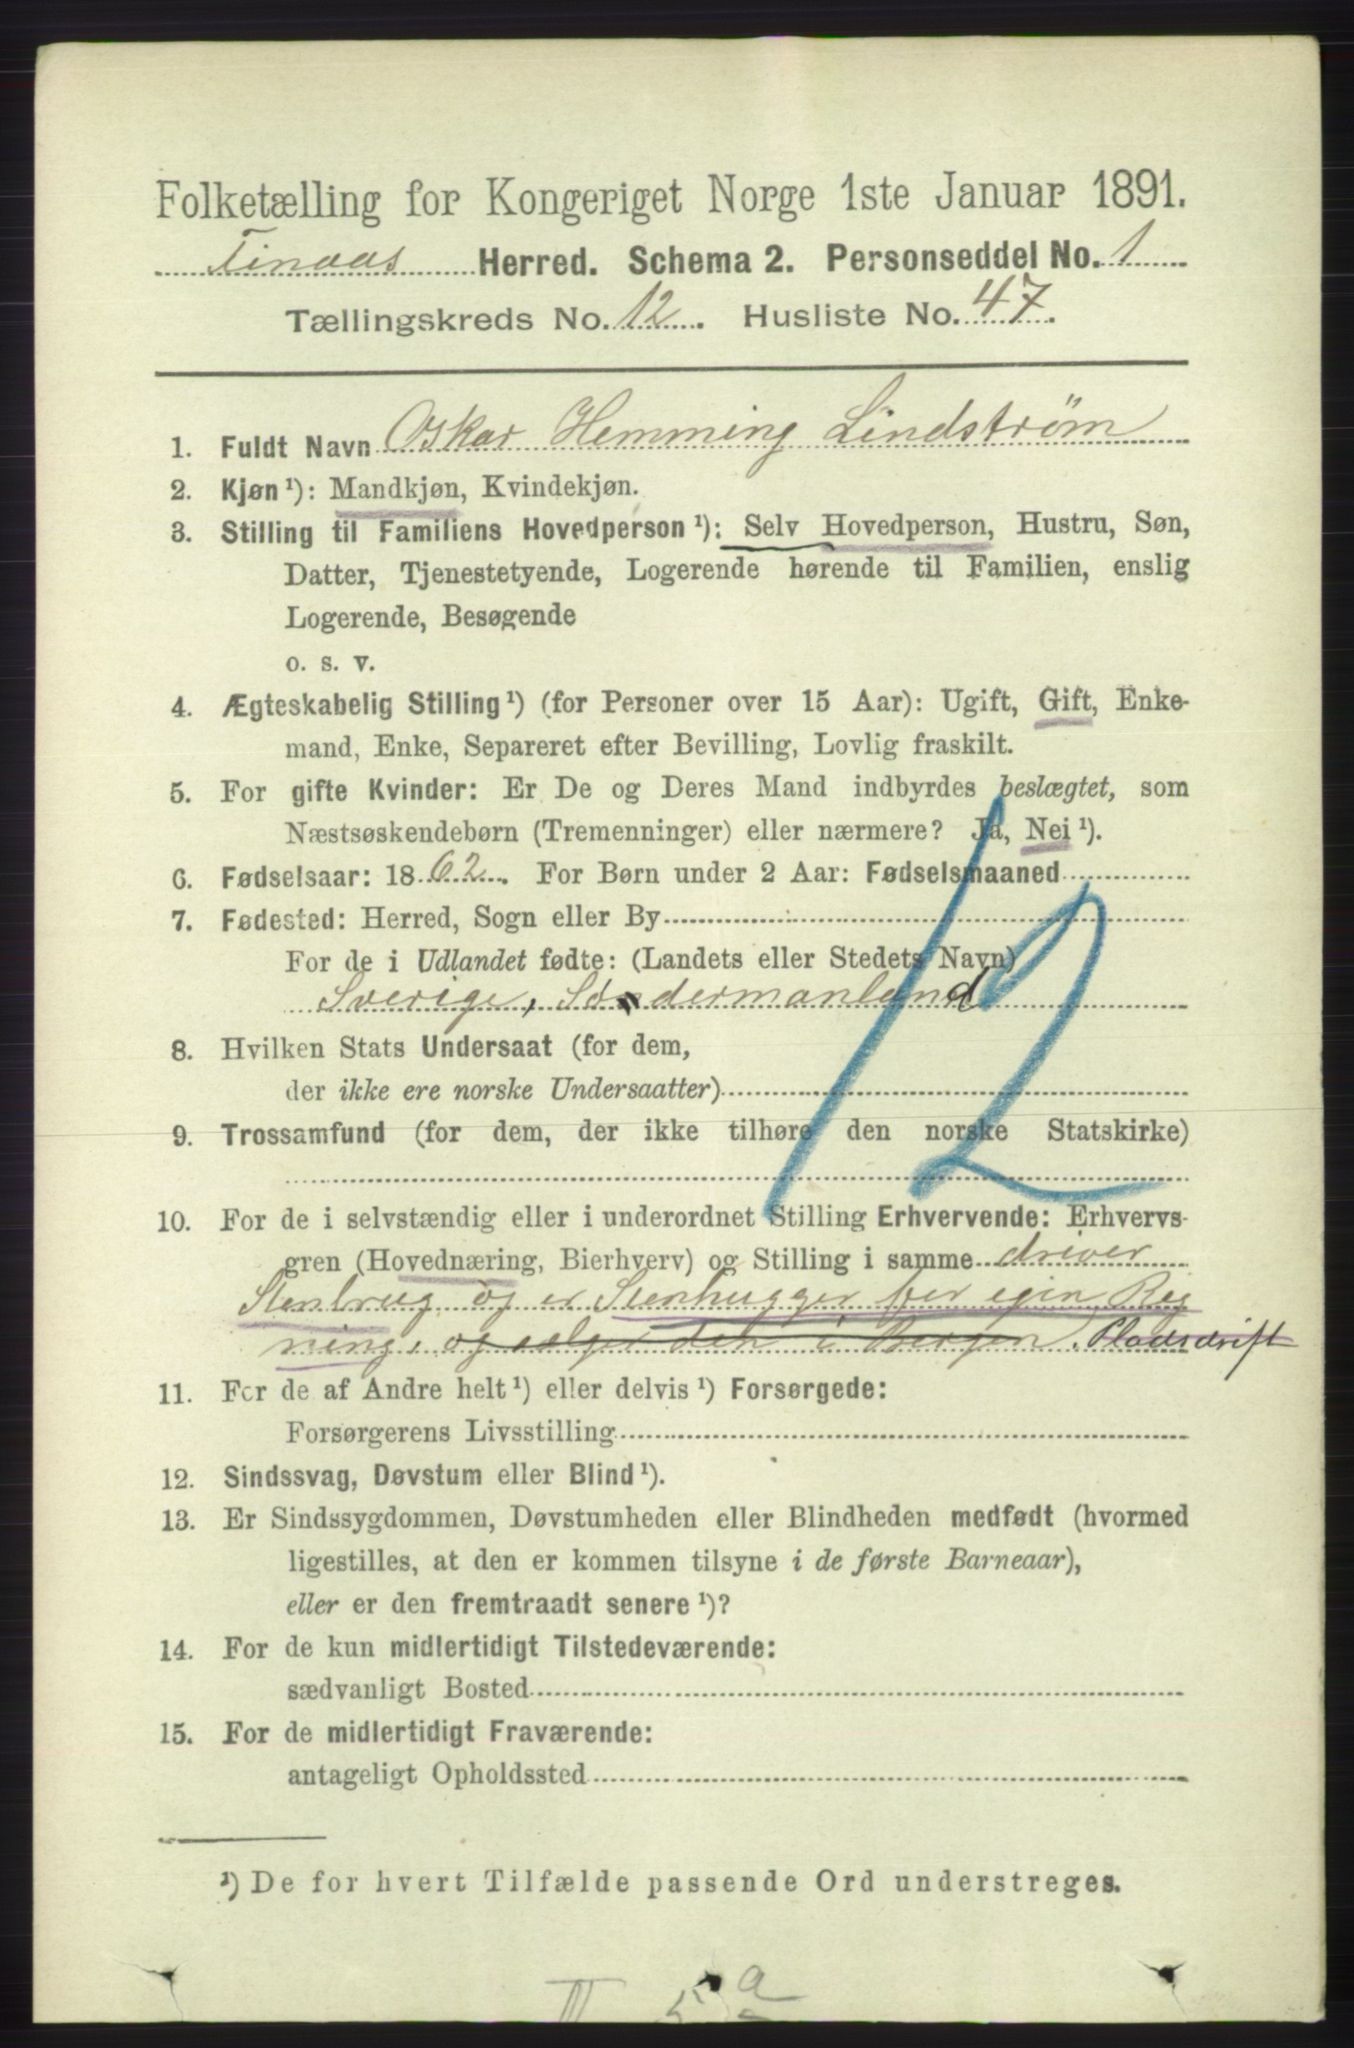 Folketælling for Kongeriget Norge 1ste Januar 1891.
Finaas Herred. Schema 2. Personseddel No. 1
Tællingskreds No. 12. Husliste No. 47.
1. Fuldt Navn Oskar Hemming Lindstrøm
2. Kjøn ¹): Mandkjøn, Kvindekjøn.
3. Stilling til Familiens Hovedperson ¹): Selv Hovedperson, Hustru, Søn,
Datter, Tjenestetyende, Logerende hørende til Familien, enslig
Logerende, Besøgende
o. s. v.
4. Ægteskabelig Stilling ¹) (for Personer over 15 Aar): Ugift, Gift, Enke-
mand, Enke, Separeret efter Bevilling, Lovlig fraskilt.
5. For gifte Kvinder: Er De og Deres Mand indbyrdes beslægtet, som
Næstsøskendebørn (Tremenninger) eller nærmere? Ja, Nei ¹).
6. Fødselsaar: 1862. For Børn under 2 Aar: Fødselsmaaned
7. Fødested: Herred, Sogn eller By
For de i Udlandet fødte: (Landets eller Stedets Navn)
Sverige, Södermanland
8. Hvilken Stats Undersaat (for dem,
der ikke ere norske Undersaatter)
9. Trossamfund (for dem, der ikke tilhøre den norske Statskirke)
12
10. For de i selvstændig eller i underordnet Stilling Erhvervende: Erhvervs-
gren (Hovednæring, Bierhverv) og Stilling i samme driver
Stenbrug, og er Stenhugger for egin Reg
ning, og sælger den i Bergen. Pladsdrift
11. For de af Andre helt ¹) eller delvis ¹) Forsørgede:
Forsørgerens Livsstilling
12. Sindssvag, Døvstum eller Blind ¹).
13. Er Sindssygdommen, Døvstumheden eller Blindheden medfødt (hvormed
ligestilles, at den er kommen tilsyne i de første Barneaar),
eller er den fremtraadt senere ¹)?
14. For de kun midlertidigt Tilstedeværende:
sædvanligt Bosted
15. For de midlertidigt Fraværende:
antageligt Opholdssted
¹) De for hvert Tilfælde passende Ord understreges.
II 5 a